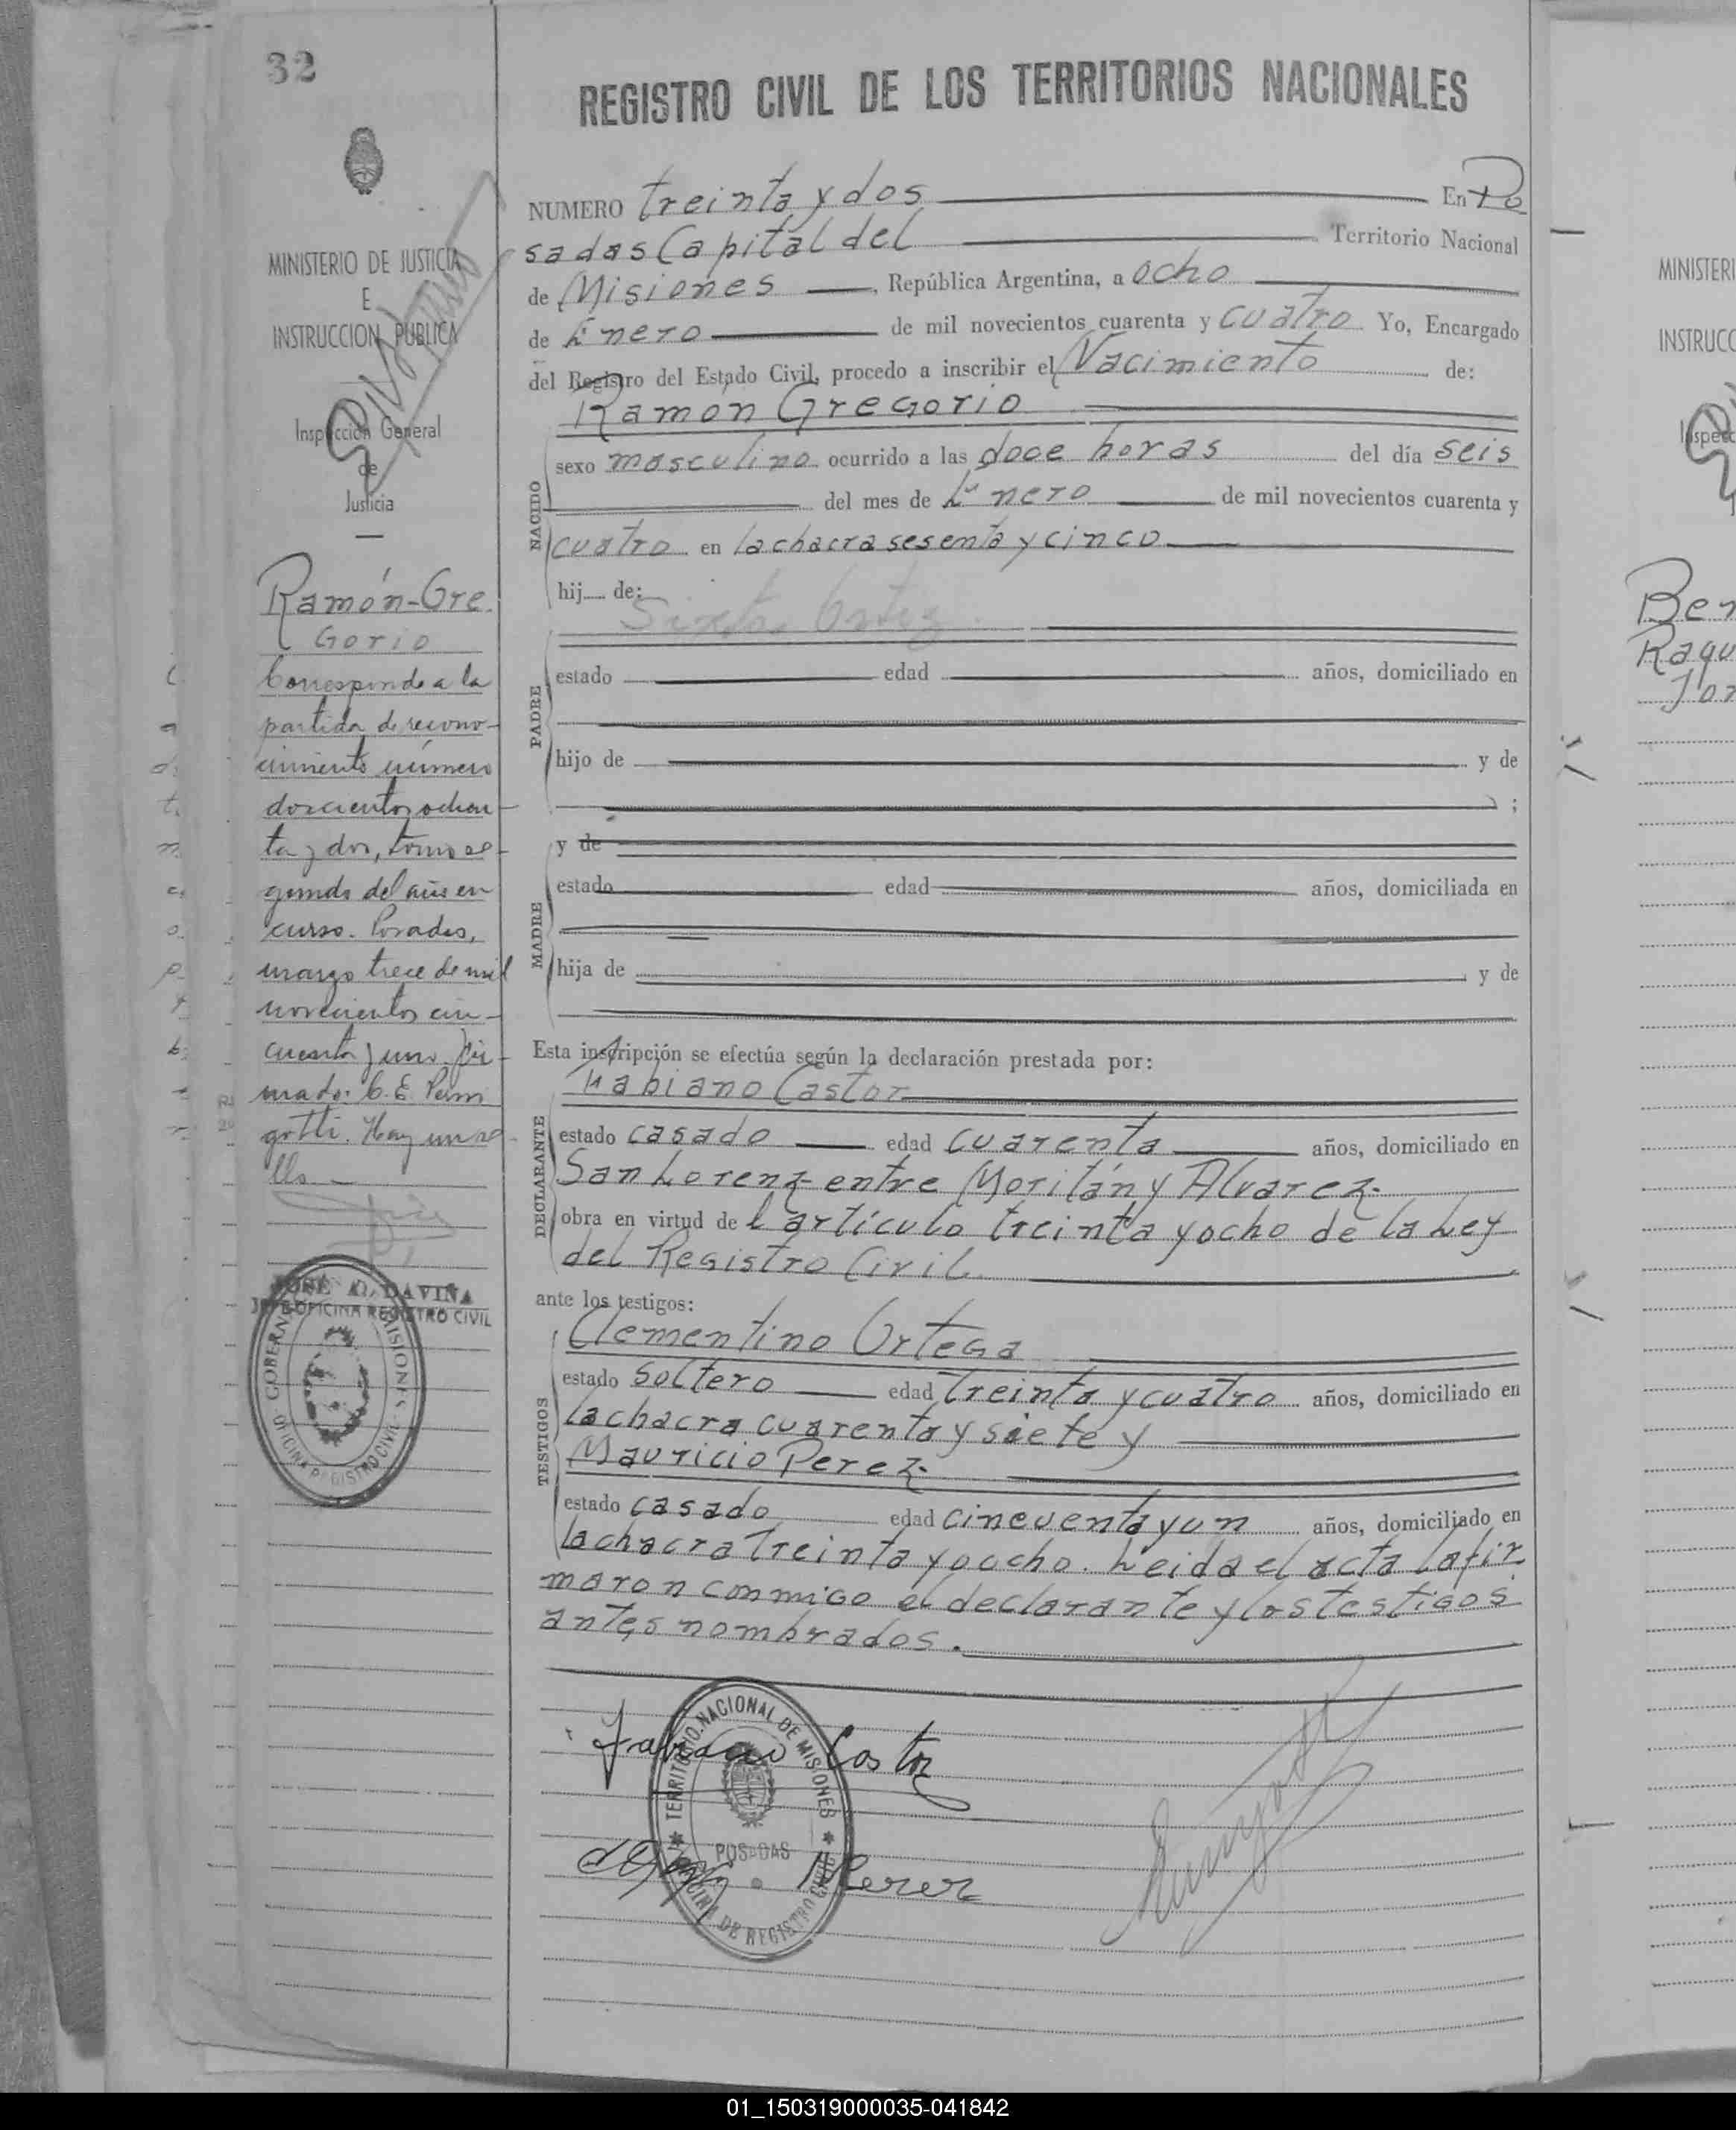 32
REGISTRO CIVIL DE LOS TERRITORIOS NACIONALES
MINISTERIO DE JUSTICIA
E
INSTRUCCION PUBLICA
Inspección General
de
Justicia
Ramón-Gre
Gorio
Corresponde a la
partida de recono-
cimiento número
doscientos ochen-
ta y dos, tomo se-
gundo del año en
curso. Posadas,
marzo trece de mil
novecientos cin-
cuenta y uno. Fir-
mado: C. E.
Hay un se-
llo
JOSÉ A. DAVIÑA
JEFE OFICINA REGISTRO CIVIL
OFICINA REGISTRO CIVIL
NUMERO treinta y dos En Po
sadas Capital del Territorio Nacional
de Misiones, República Argentina, a ocho
de Enero de mil novecientos cuarenta y cuatro Yo, Encargado
del Registro del Estado Civil, procedo a inscribir el Nacimiento de:
Ramon Gregorio
NACIDO
sexo masculino ocurrido a las doce horas del día seis
del mes de Enero de mil novecientos cuarenta y
cuatro en la chacra sesenta y cinco
hij de:
PADRE
estado edad años, domiciliado en
hijo de y de
;
y de
MADRE
estado edad años, domiciliada en
hija de y de
Esta inscripción se efectúa según la declaración prestada por:
Fabiano Castor
DECLARANTE
estado casado edad cuarenta años, domiciliado en
San Lorenz entre Moritán y Alvarez.
obra en virtud de l artículo treinta y ocho de la Ley
del Registro Civil.
ante los testigos:
Clementino Ortega
TESTIGOS
estado Soltero edad treinta y cuatro años, domiciliado en
la chacra cuarenta y siete y
Mauricio Perez.
estado casado edad cincuenta y un años, domiciliado en
la chacra treinta y oocho. Leida el acta la fir
maron conmigo el declarante y los testigos
antes nombrados.
Fabiano Castor
TERRITORIO NACIONAL DE MISIONES
POSADAS
OFICINA DE REGISTRO CIVIL
M Perez
MINISTERI
INSTRUCC
Inspecc
Ben
Raqu
01_150319000035-041842